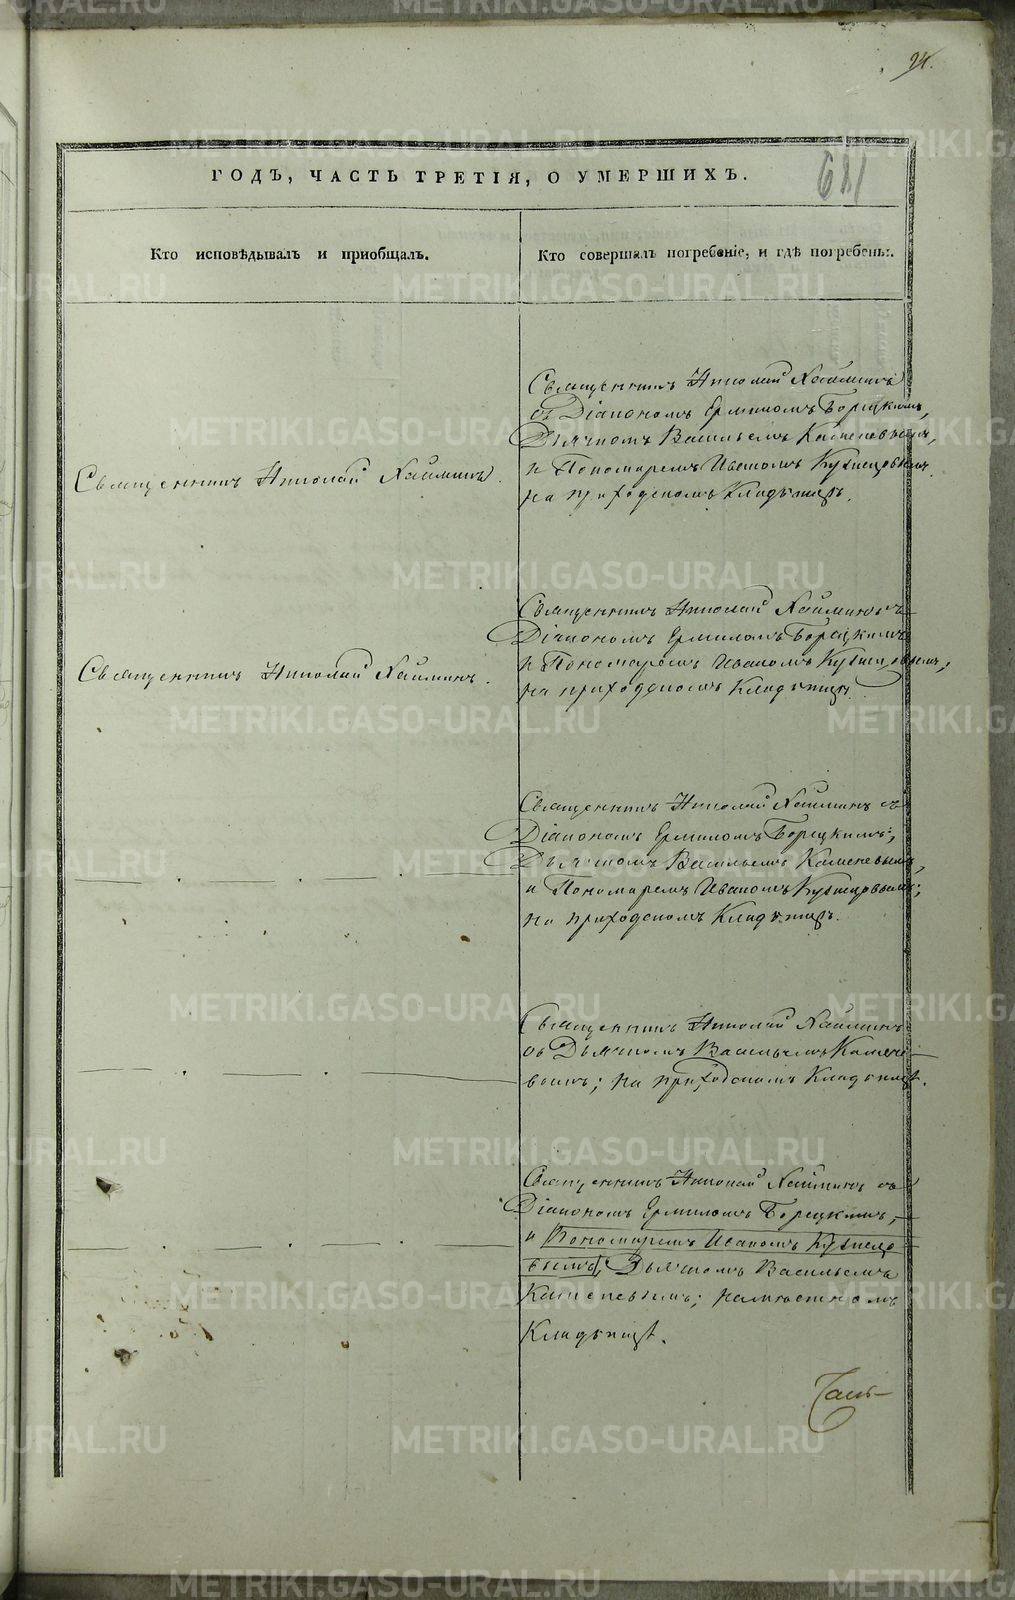 94.
ГОДЪ, ЧАСТЬ ТРЕТІЯ, О УМЕРШИХЪ.
681
Кто исповѣдывалъ и пріобщалъ.
Кто совершалъ погребеніе, и гдѣ погребены.
Священникъ Николай Найминъ.
Священникъ Николай Найминъ
съ Діакономъ Ермиломъ Борецкимъ,
Дьячкомъ Васильемъ Каменевымъ,
и Пономаремъ Иваномъ Кузнецовымъ
на приходскомъ Кладбищѣ.
Священникъ Николай Найминъ.
Священникъ Николай Наймин съ
Діакономъ Ермиломъ Борецкимъ
и Пономаремъ Иваномъ Кузнецовымъ,
на приходскомъ Кладбищѣ.
Священникъ Николай Наймин съ
Діакономъ Ермиломъ Борецкимъ;
Дьячкомъ Васильемъ Каменевымъ,
и Пономаремъ Иваномъ Кузнецовымъ;
на приходскомъ Кладбищѣ.
Священникъ Николай Найминъ
съ Дьячкомъ Васильемъ Камене-
вымъ; на приходскомъ Кладбищѣ.
Священникъ Николай Найминъ съ
Діакономъ Ермиломъ Борецкимъ,
и Пономаремъ Иваномъ Кузнецо
вымъ, Дьячкомъ Васильемъ
Каменевымъ; на мѣстномъ
Кладбищѣ.
METRIKI.GASO-URAL.RU